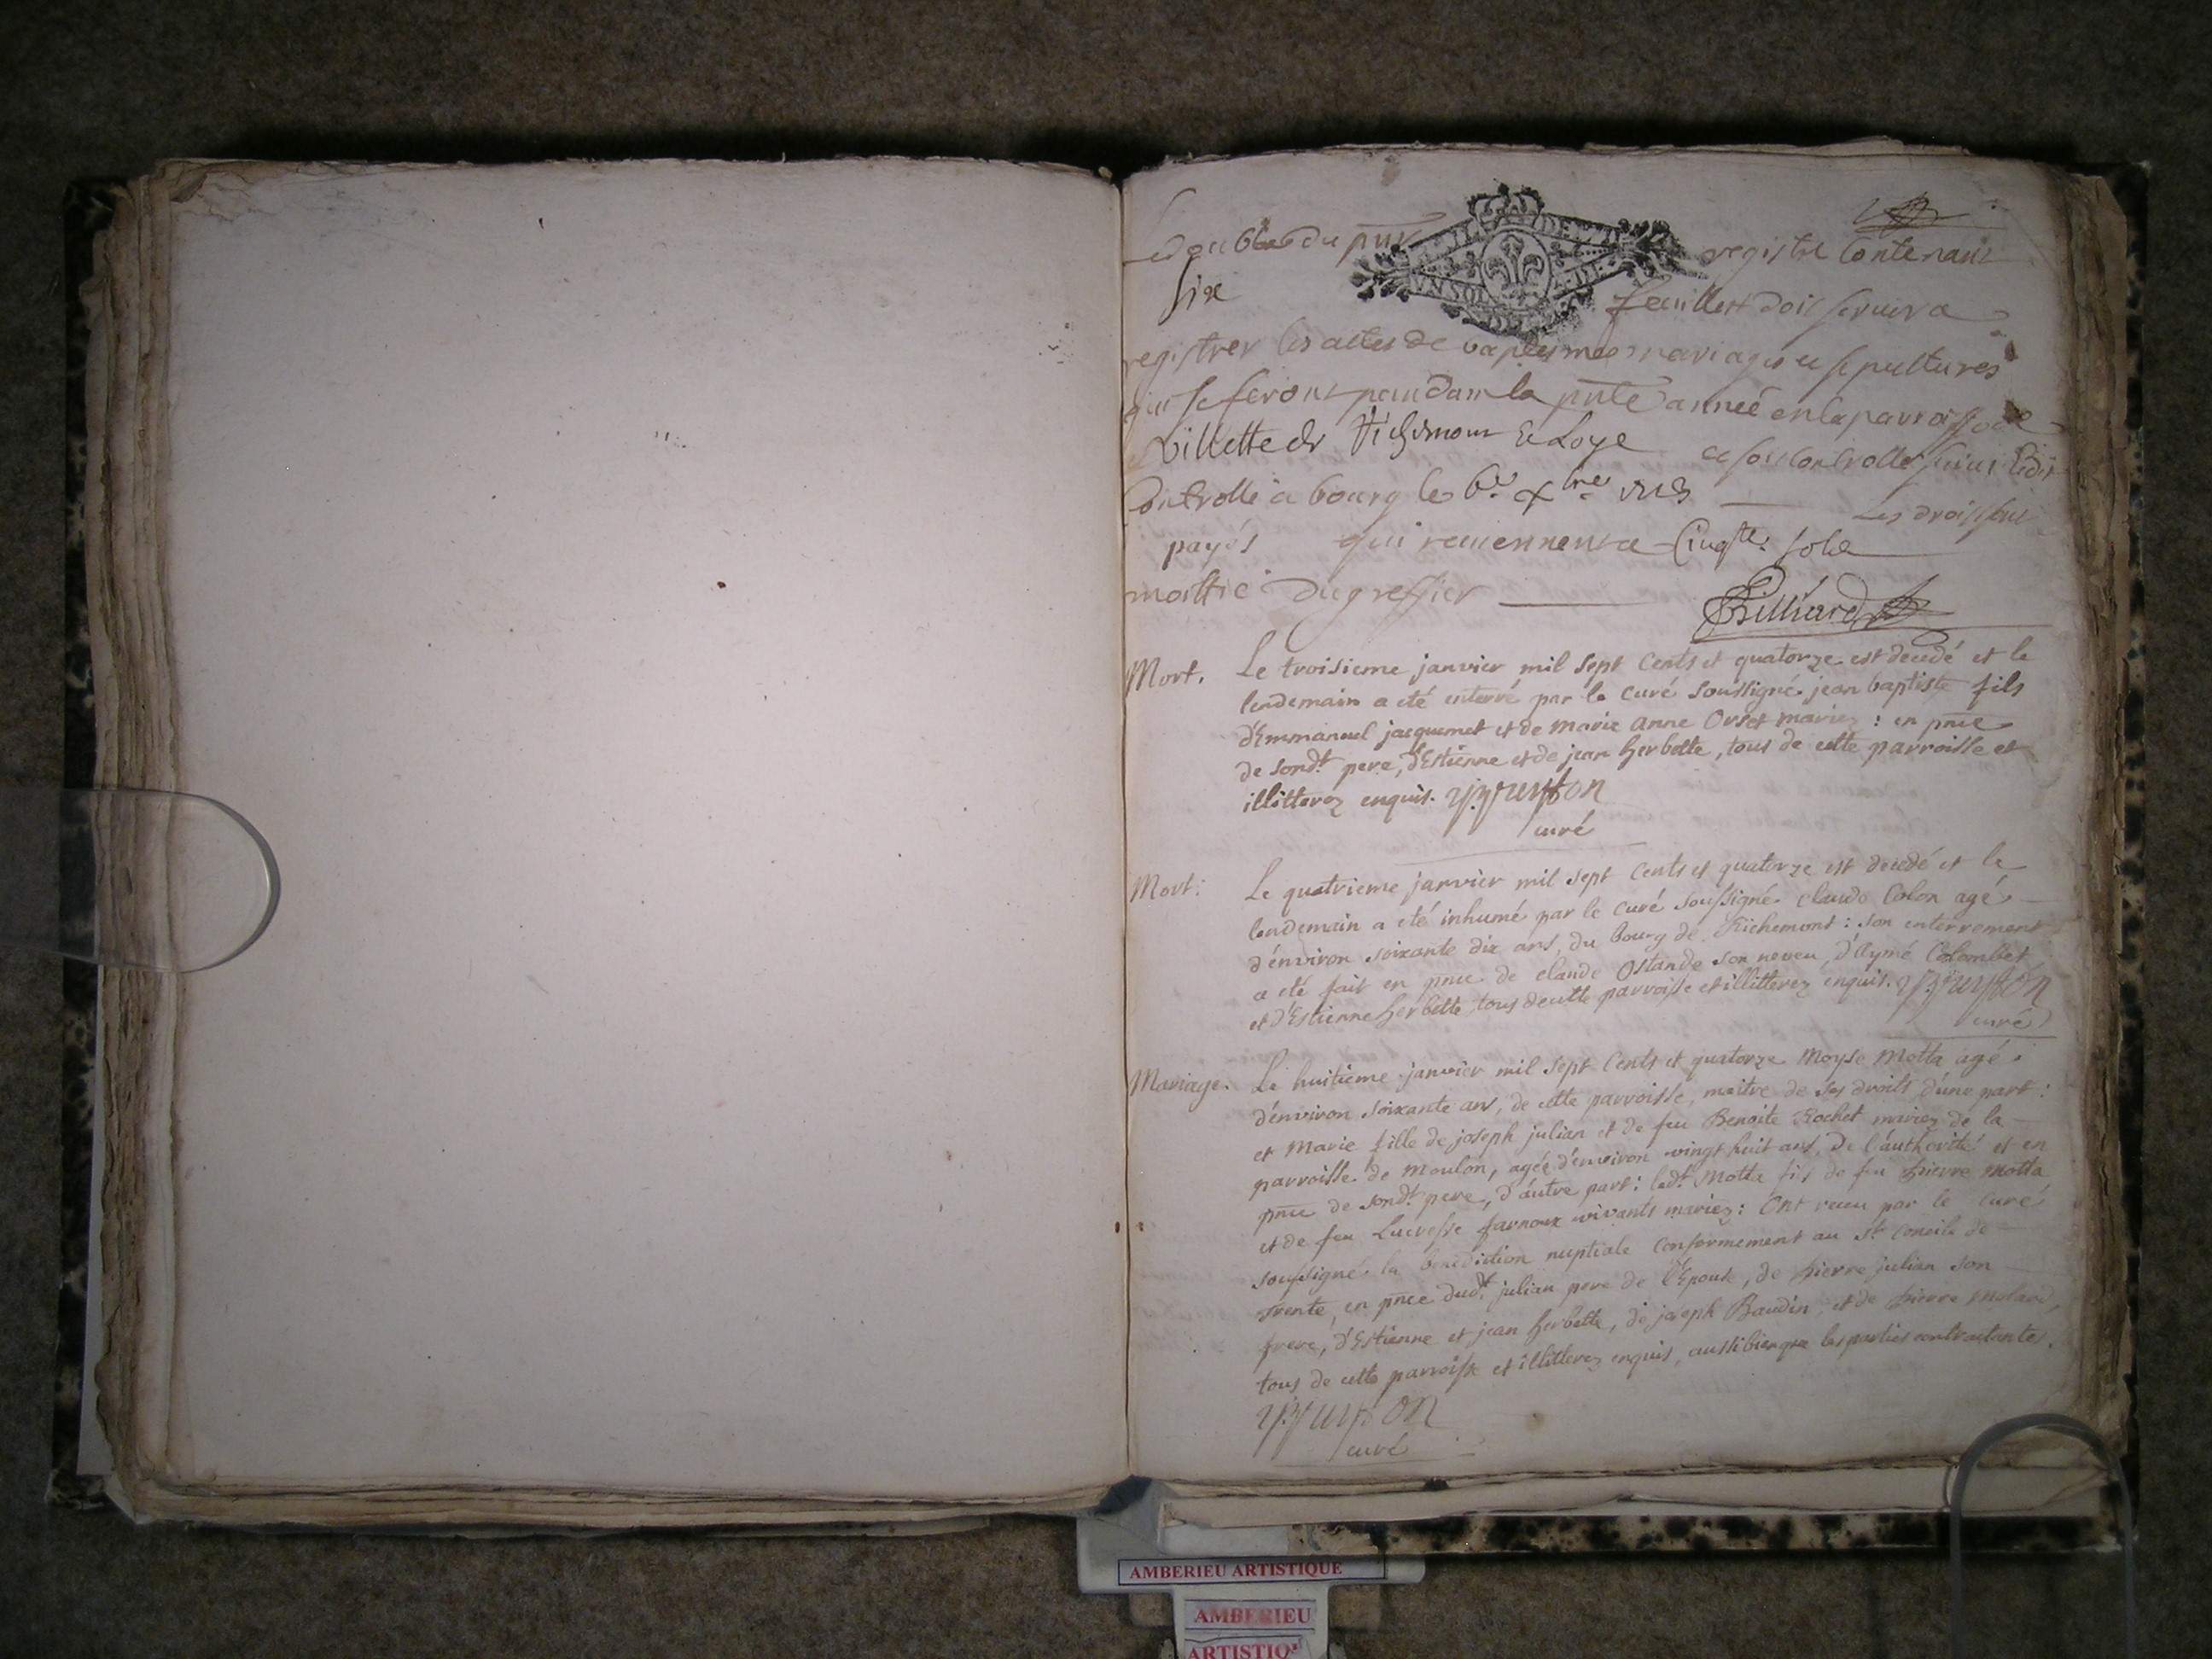 Le double du pnt registre Contenant
six feuillets doit servir a
registrer les actes de baptesmes mariages et sepultures
qui se feront pendant la pnte année en la parroisse de
Villette de Richemont & Loye et sous controlle suivt l'edit
Controllé a bourg le 6e xbre 1713 Les droits sont
payés qui reviennent a Cinqte sols
moittié du greffier
Billiard
Mort. Le troisieme janvier mil sept Cents et quatorze est decedé et le
lendemain a eté enterré par le curé soussigné jean baptiste fils
d'Emmanuel jacquemet et de Marie Anne Orset mariez : en pnce
de sondt. pere, d'Estienne et de jean herbette, tous de cette parroisse et
illitterez enquis.
curé
Mort: Le quatrieme janvier mil sept Cents et quatorze est decedé et le
lendemain a eté inhumé par le curé soussigné claude Colon agé
d'énviron soixante dix ans, du bourg de Richemont : son enterrement
a eté fait en pnce de claude Ostande son neveu, d'Aymé Colombet
et d'Estienne herbette, tous de cette parroisse et illitterez enquis.
curé
Mariage. Le huitieme janvier mil sept Cents et quatorze Moyse Motta agé
d'énviron soixante ans, de cette parroisse, maitre de ses droits d'une part :
et Marie fille de joseph julian et de feu Benoite Rochet mariez de la
parroisse de Moulon, agée d'énviron vingt huit ans, De l'authorité et en
pnce de sondt. pere, d'autre part : ledt. Motta fils de feu pierre Motta
et de feu Lucresse farnoux vivants mariez : Ont receu par le curé
soussigné la benediction nuptiale Conformement au st. concile de
trente, en pnce dudt. julian pere de l'Epouse, de pierre julian son
frere, d'Estienne et jean herbette, de joseph Baudin, et de pierre Molard,
tous de cette parroisse et illitterez enquis, aussi bien que les parties contractantes.
curé
AMBERIEU ARTISTIQUE
AMBERIEU
ARTISTIQU